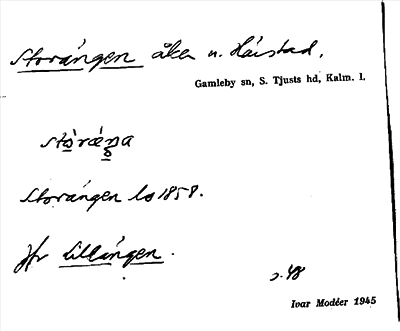 Storängen åker n. Håistad.
Gamleby sn, S. Tjusts hd, Kalm. l.
Storängen ls 1858.
Jfr Lillängen.
s. 48
Ivar Modéer 1945